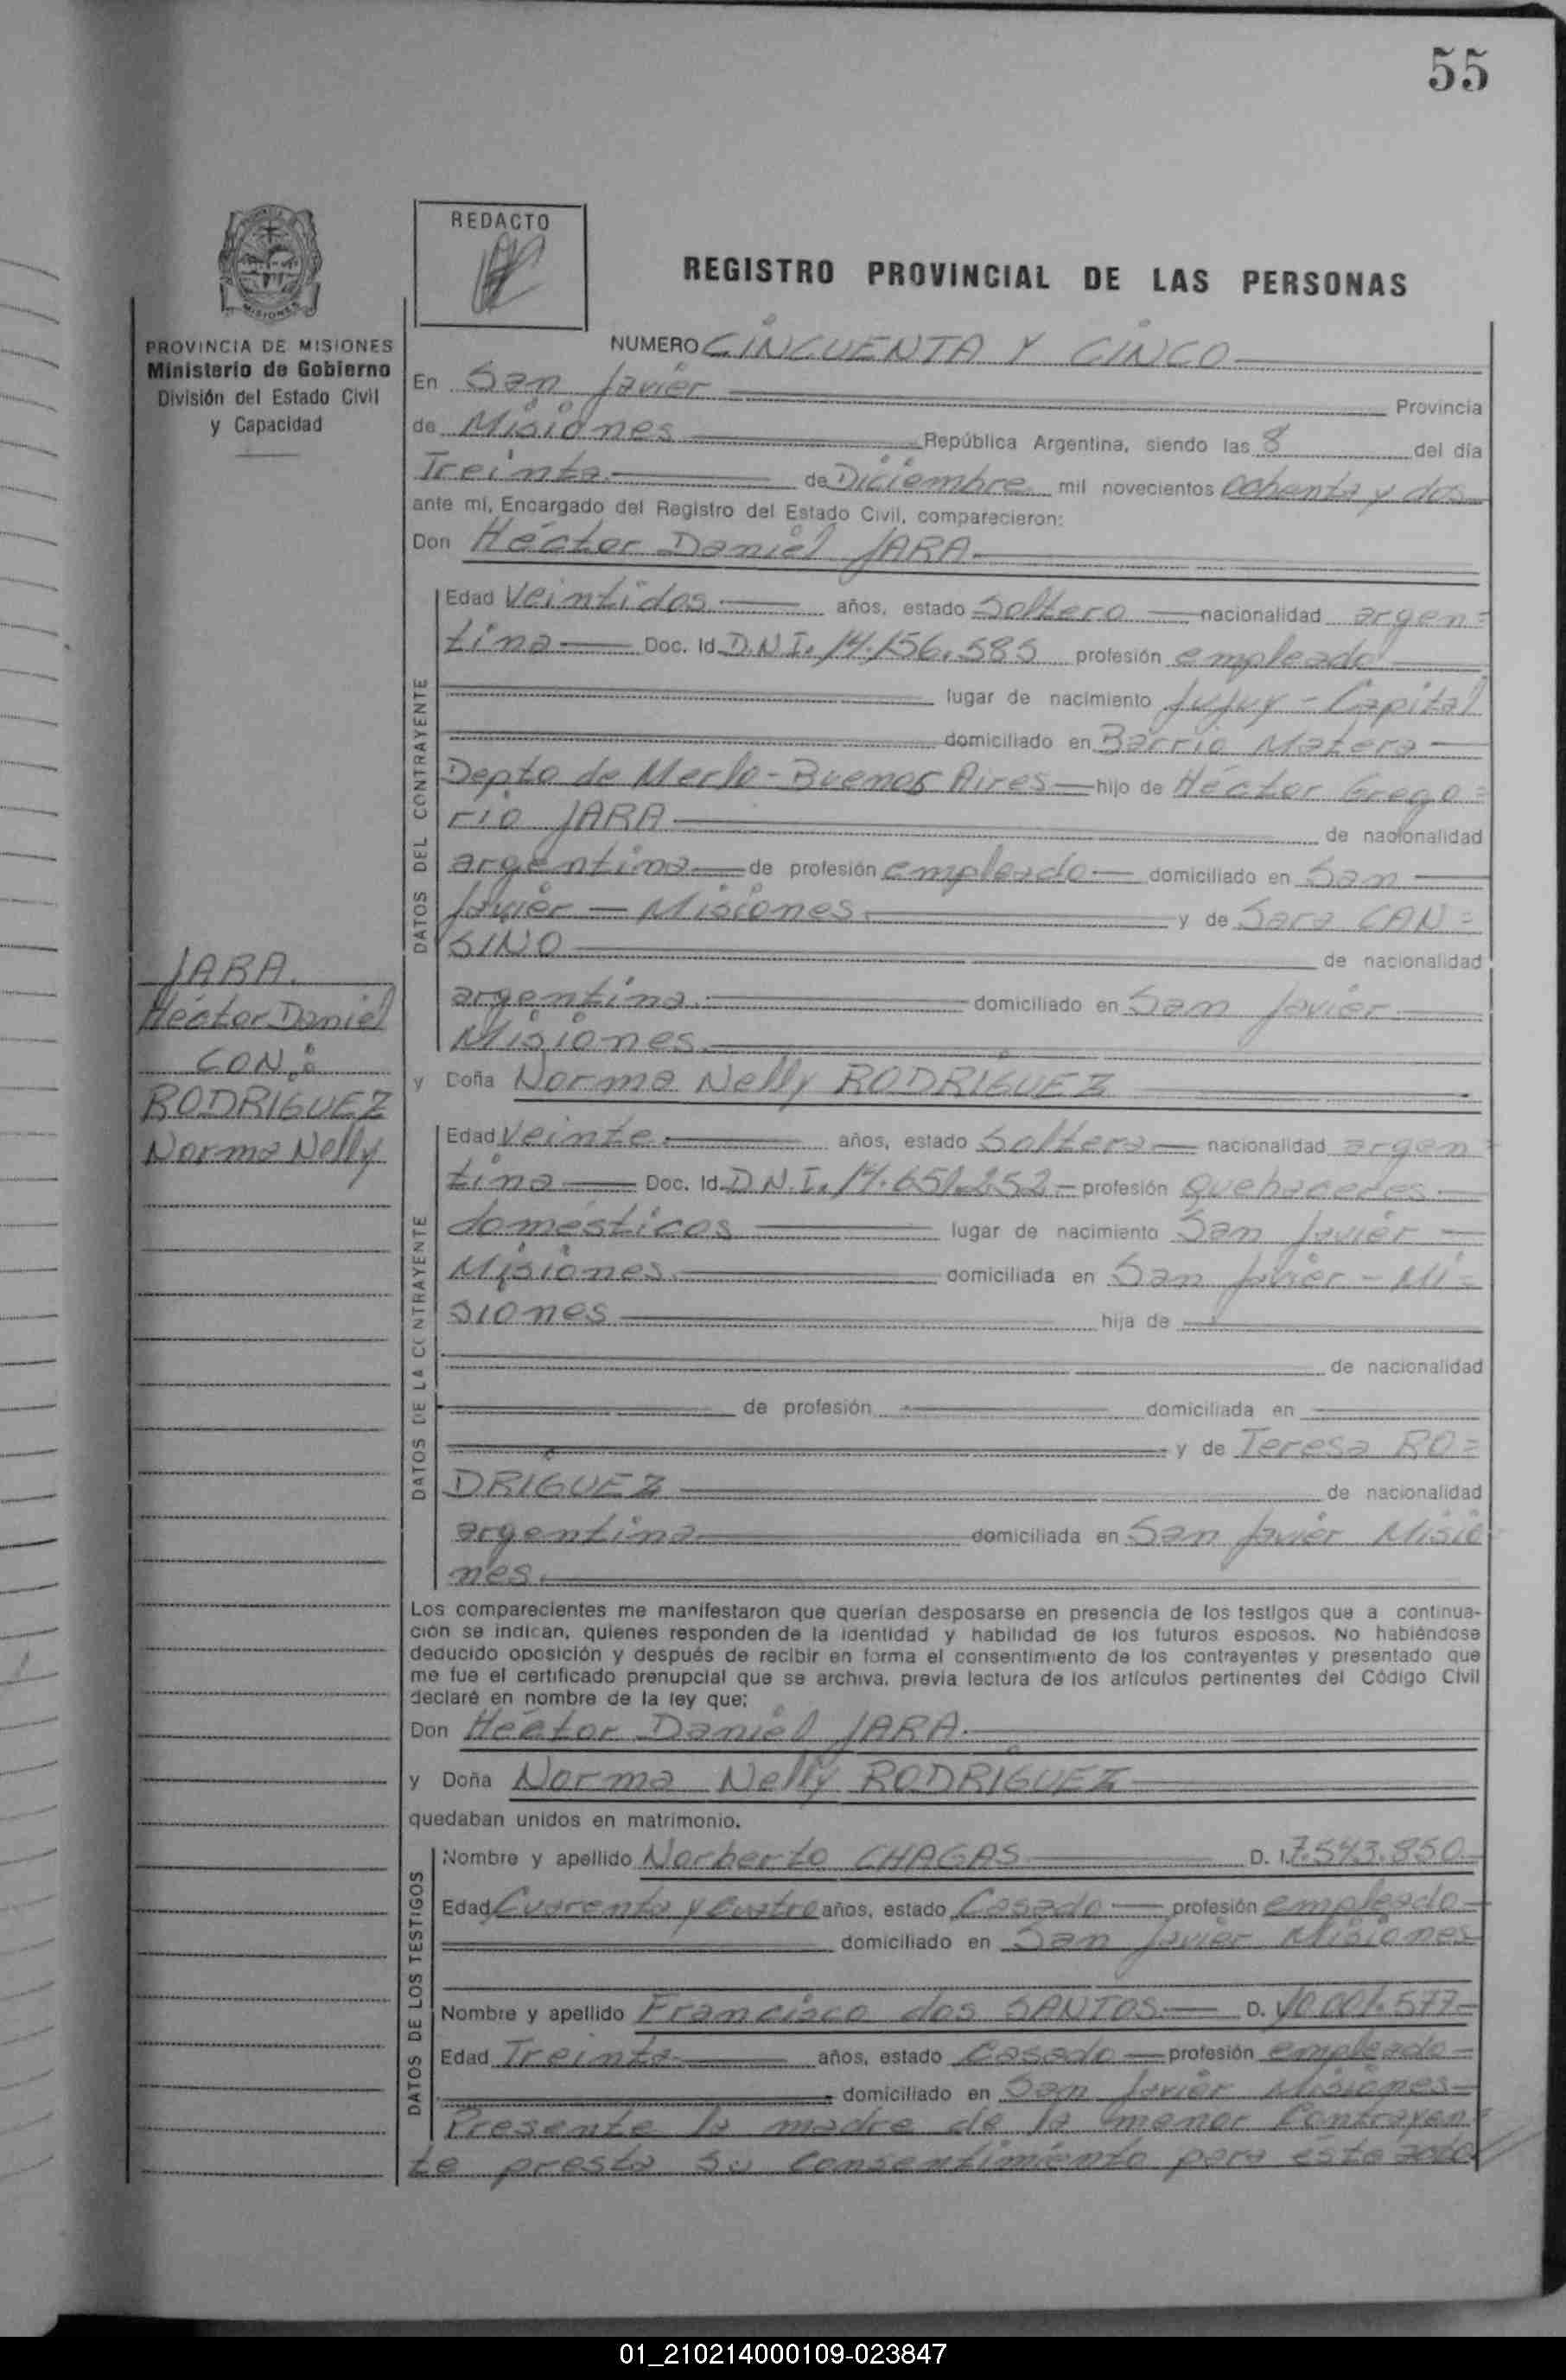 55
REDACTO
REGISTRO PROVINCIAL DE LAS PERSONAS
MISIONES
PROVINCIA DE MISIONES
Ministerio de Gobierno
División del Estado Civil
y Capacidad
NUMERO CINCUENTA Y CINCO
En San Javier Provincia
de Misiones República Argentina, siendo las 8 del día
Treinta de Diciembre mil novecientos ochenta y dos
ante mí, Encargado del Registro del Estado Civil, comparecieron:
Don Héctor Daniel JARA
DATOS DEL CONTRAYENTE
Edad Veintidos años, estado Soltero nacionalidad argen=
tina Doc. Id. D.N.I. 14.156.585 profesión empleado
lugar de nacimiento Jujuy - Capital
domiciliado en Barrio Matera
Depto de Merlo - Buenos Aires hijo de Héctor Grego=
rio JARA de nacionalidad
argentina de profesión empleado domiciliado en San
Javier - Misiones y de Sara CAN=
SINO de nacionalidad
argentina domiciliado en San Javier
Misiones
JARA
Héctor Daniel
CON:
RODRIGUEZ
Norma Nelly
y Doña Norma Nelly RODRIGUEZ
DATOS DE LA CONTRAYENTE
Edad Veinte años, estado Soltera nacionalidad argen
tina Doc. Id. D.N.I. 14.651.252 - profesión Quehaceres
domésticos lugar de nacimiento San Javier
Misiones domiciliada en San Javier - Mi=
siones hija de
de nacionalidad
de profesión domiciliada en
y de Teresa RO=
DRIGUEZ de nacionalidad
argentina domiciliada en San Javier Misio
nes.
Los comparecientes me manifestaron que querían desposarse en presencia de los testigos que a continua-
ción se indican, quienes responden de la identidad y habilidad de los futuros esposos. No habiéndose
deducido oposición y después de recibir en forma el consentimiento de los contrayentes y presentado que
me fue el certificado prenupcial que se archiva, previa lectura de los artículos pertinentes del Código Civil
declaré en nombre de la ley que:
Don Héctor Daniel JARA
y Doña Norma Nelly RODRIGUEZ
quedaban unidos en matrimonio.
DATOS DE LOS TESTIGOS
Nombre y apellido Norberto CHAGAS D. I. 7.543.850
Edad Cuarenta y cuatro años, estado Casado profesión empleado
domiciliado en San Javier Misiones
Nombre y apellido Francisco dos SANTOS D. I. 10.001.577
Edad Treinta años, estado Casado profesión empleado
domiciliado en San Javier Misiones
Presente la madre de la menor Contrayen=
te presta su consentimiento para éste acto
01_210214000109-023847